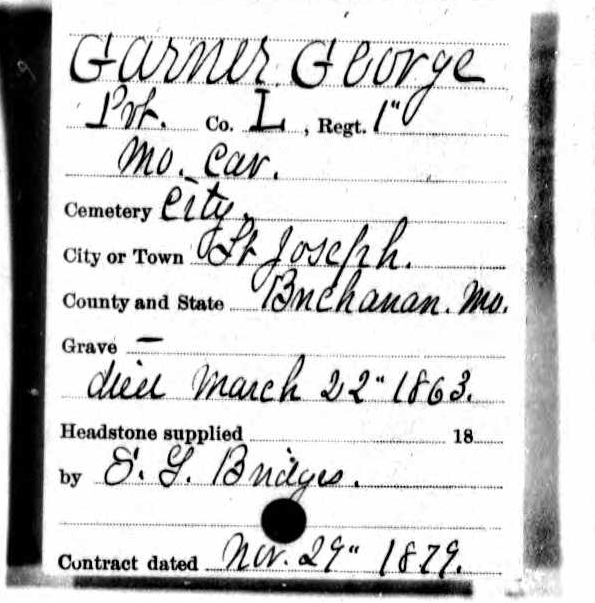 Garner George
Pvt. Co. L, Regt. 1"
Mo. Cav.
Cemetery City.
City or Town St Joseph.
County and State Buchanan. Mo.
Grave —
died March 22" 1863.
Headstone supplied 18
by S. G. Bridges.
Contract dated Nov. 29" 1879.